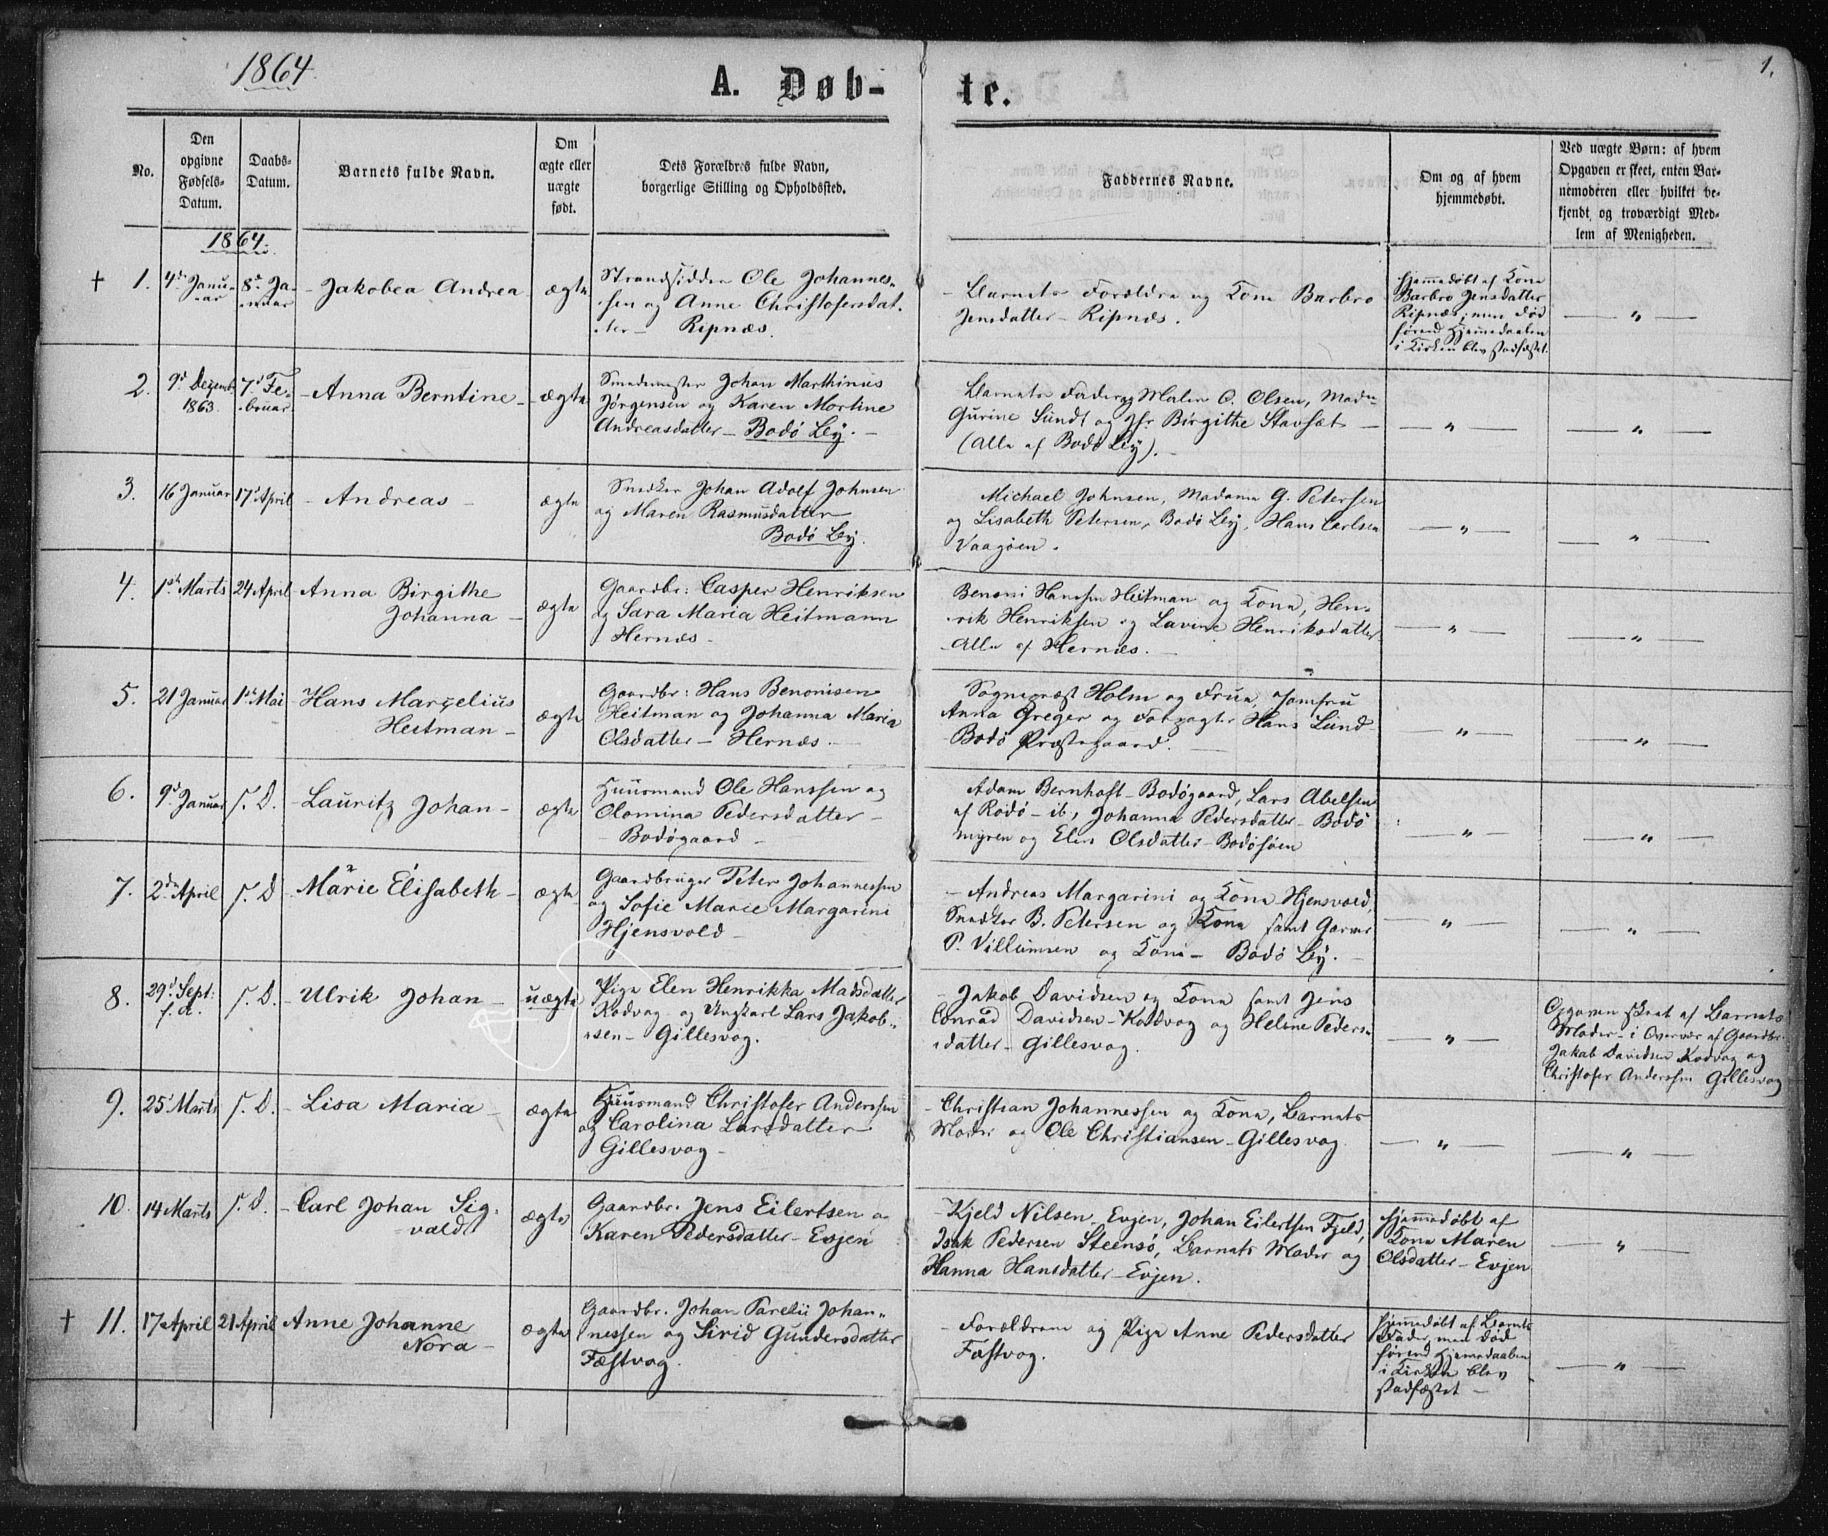 1864.
A. Døb-
te.
1.
No.
Den
opgivne
Fødsels-
Datum.
Daabs-
Datum.
Barnets fulde Navn.
Om
ægte eller
uægte
født.
Dets Forældres fulde Navn,
borgerlige Stilling og Opholdssted.
Faddernes Navne.
Om og af hvem
hjemmedøbt.
Ved uægte Børn: af hvem
Opgaven er skeet, enten Bar-
nemoderen eller hvilket be-
kjendt og troværdigt Med-
lem af Menigheden.
1864.
† 1.
4de Janu-
ar
8de Ja-
nuar
Jakobea Andrea
ægte
Strandsidder Ole Johannes-
sen og Anne Christofersdat-
ter - Ripnæs.
Barnets Forældre og Kone Barbro
Jensdatter - Ripnæs.
Hjemmedøbt af Kone
Barbro Jensdatter
Ripnæs, men død
førend Hjemmedaaben
i Kirken blev stadfæstet.
— " —
2.
9d Dezemb.
1863.
7d Fe-
bruar
- Anna Berntine -
ægte
Smedemester Johan Marthinus
Jørgensen og Karen Martine
Andreasdatter - Bodø By. -
Barnets Fader og Maler O. Olsen, Mad.
Gurine Sundt og Jfr Birgithe Stavsæt -
(Alle af Bodø By).
— " —
— " —
3.
16 Januar
17d April
- Andreas -
ægte
Snedker Johan Adolf Johnsen
og Maren Rasmusdatter
Bodø By.
Michael Johnsen, Madame G. Petersen
og Lisabeth Petersen, Bodø By, Hans Carlsen
Vaagøen.
— " —
— " —
4.
1ste Marts
24 April
Anna Birgithe
Johanna -
ægte
Gaardbr: Casper Henriksen
og Sara Maria Heitmann
Hernæs -
Benoni Hanssen Heitman og Kone, Hen-
rik Henriksen og Lavine Henriksdatter
- Alle af Hernæs. -
— " —
— " —
5.
21 Januar
1ste Mai
- Hans Marcelius
Heitman -
ægte
Gaardbr: Hans Benonisen
Heitman og Johanna Maria
Olsdatter - Hernæs. -
Sognepræst Holm og Frue, Jomfru
Anna Greger og Hans Lund
Bodø Præstegaard.
— " —
— " —
6.
9d Januar
s. D.
- Lauritz Johan -
ægte
Huusmand Ole Hanssen og
Olomina Pedersdatter -
- Bodøgaard -
Adam Bernhoft - Bodøgaard, Lars Abelsen
af Rødø - ib, Johanna Pedersdatter - Bodø
myren og Elen Olsdatter - Bodøsøen
— " —
— " —
7.
2den April
s. D
Marie Elisabeth -
ægte
Gaardbruger Peter Johannessen
og Sofie Marie Margarini
Hjensvold -
- Andreas Margarini og Kone Hjensvold,
Snedker B. Petersen og Kone samt Garver
P. Villumsen og Kone - Bodø By. -
— " —
— " —
8.
29d Sept:
f. A.
s. D.
- Ulrik Johan -
uægte
Pige Elen Henrikka Madsdatter
Kodvog - og Ungkarl Lars Jakob-
sen - Gillesvog.
- Jakob Davidsen og Kone samt Jens
Conrad Davidsen - Kodvog og Helene Peders-
datter - Gillesvog.
— " —
Opgaven skeet af Barnets
Moder - i Overvær af Gaardbr.
Jakob Davidsen Kodvog og
Christofer Anderssen Gillesvog
9.
25d Marts
s. D.
- Lisa Maria -
ægte
Huusmand Christofer Anderssen
og Carolina Larsdatter
Gillesvog -
- Christian Johannessen og Kone, Barnets
Moder og Ole Christiansen - Gillesvog
— " —
— " —
10.
14 Marts
s. D.
- Carl Johan Sig-
vald
ægte
Gaardbr. Jens Eilertsen og
Karen Pedersdatter - Evjen
- Kjeld Nilsen Evjen, Johan Eilertsen Fjeld,
Isak Pedersen Steensø, Barnets Moder og
Hanna Hansdatter - Evjen.
Hjemmedøbt af
Kone Maren
Olsdatter - Evjen
— " —
† 11.
17 April
21 April
Anne Johanne
Nora -
ægte
Gaardbr. Johan Parelii Johan-
nessen og Sirid Gundersdatter
Fæstvog.
- Forældrene og Pige Anne Pedersdatter
Fæstvog.
Hjemmedøbt af Barnets
Fader, men død
førend Hjemmedaaben
i Kirken blev
stadfæstet -
— " —